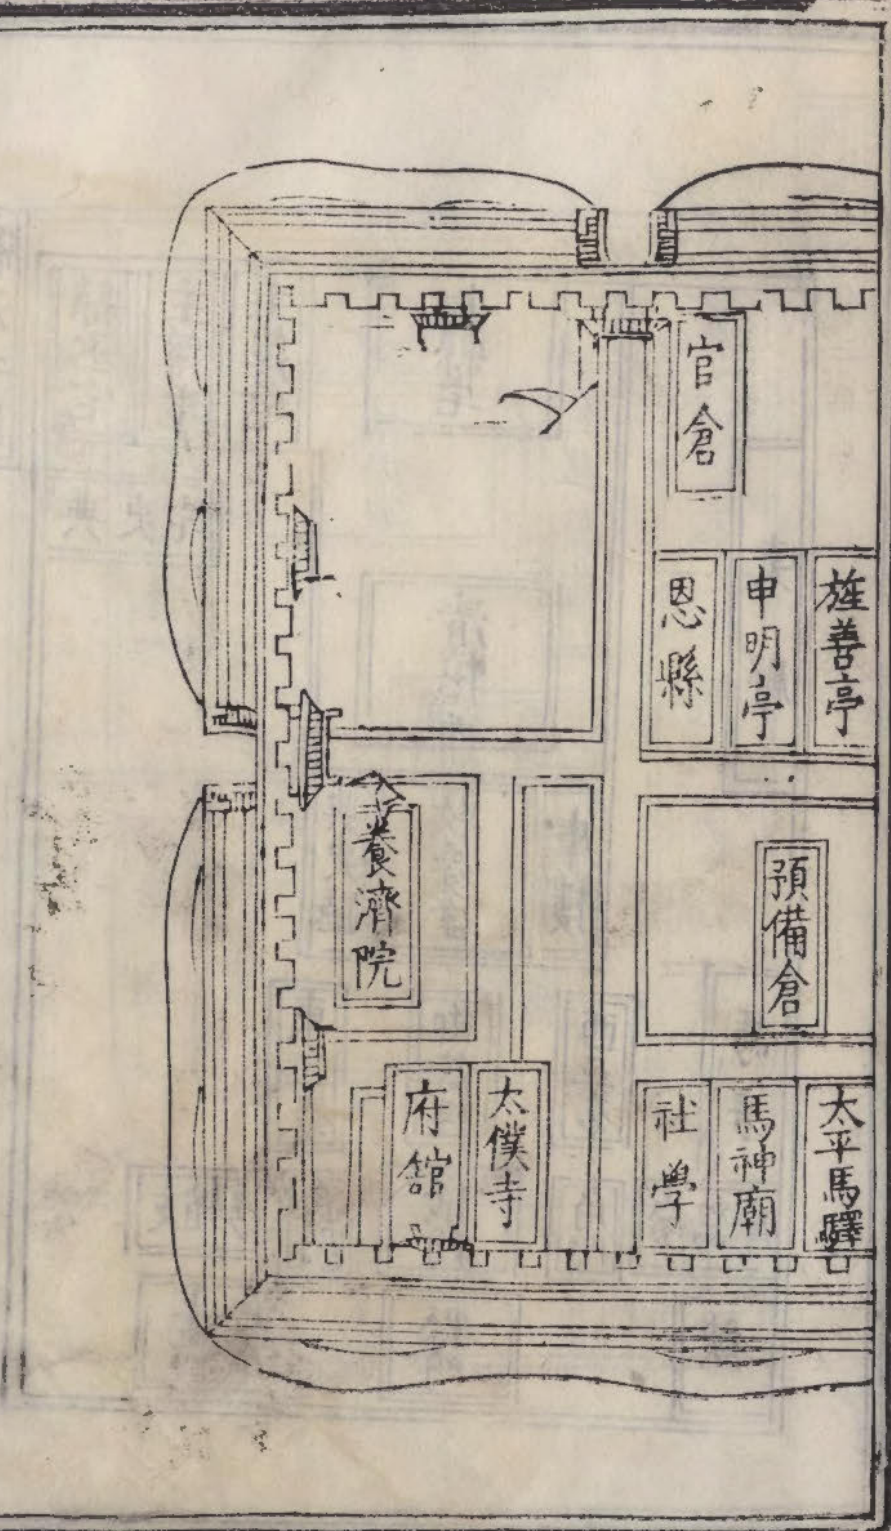 官倉
旌善亭
申明亭
恩縣
預備倉
養濟院
太平馬驛
馬神廟
社學
太僕寺
府舘